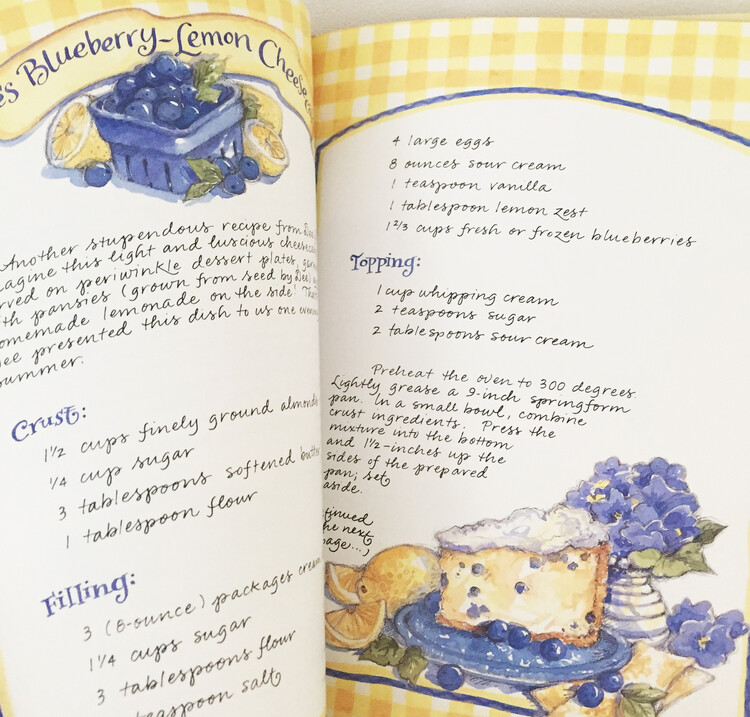 Blueberry-Lemon Cheese
Another stupendous recipe from Dee.
this light and luscious
on periwinkle dessert plates,
pansies (grown from seed by Dee)
homemade lemonade on the side!
presented this dish to us one
summer.
Crust:
1 1/2 cups finely ground almonds
1/4 cup sugar
3 tablespoons softened butter
1 tablespoon flour
Filling:
3 (8-ounce) packages cream
1 1/4 cups sugar
3 tablespoons flour
teaspoon salt
4 large eggs
8 ounces sour cream
1 teaspoon vanilla
1 tablespoon lemon zest
1 2/3 cups fresh or frozen blueberries
Topping:
1 cup whipping cream
2 teaspoons sugar
2 tablespoons sour cream
Preheat the oven to 300 degrees.
Lightly grease a 9-inch springform
pan. In a small bowl, combine
crust ingredients. Press the
mixture into the bottom
and 1 1/2-inches up the
sides of the prepared
pan; set
aside.
the next
page...,